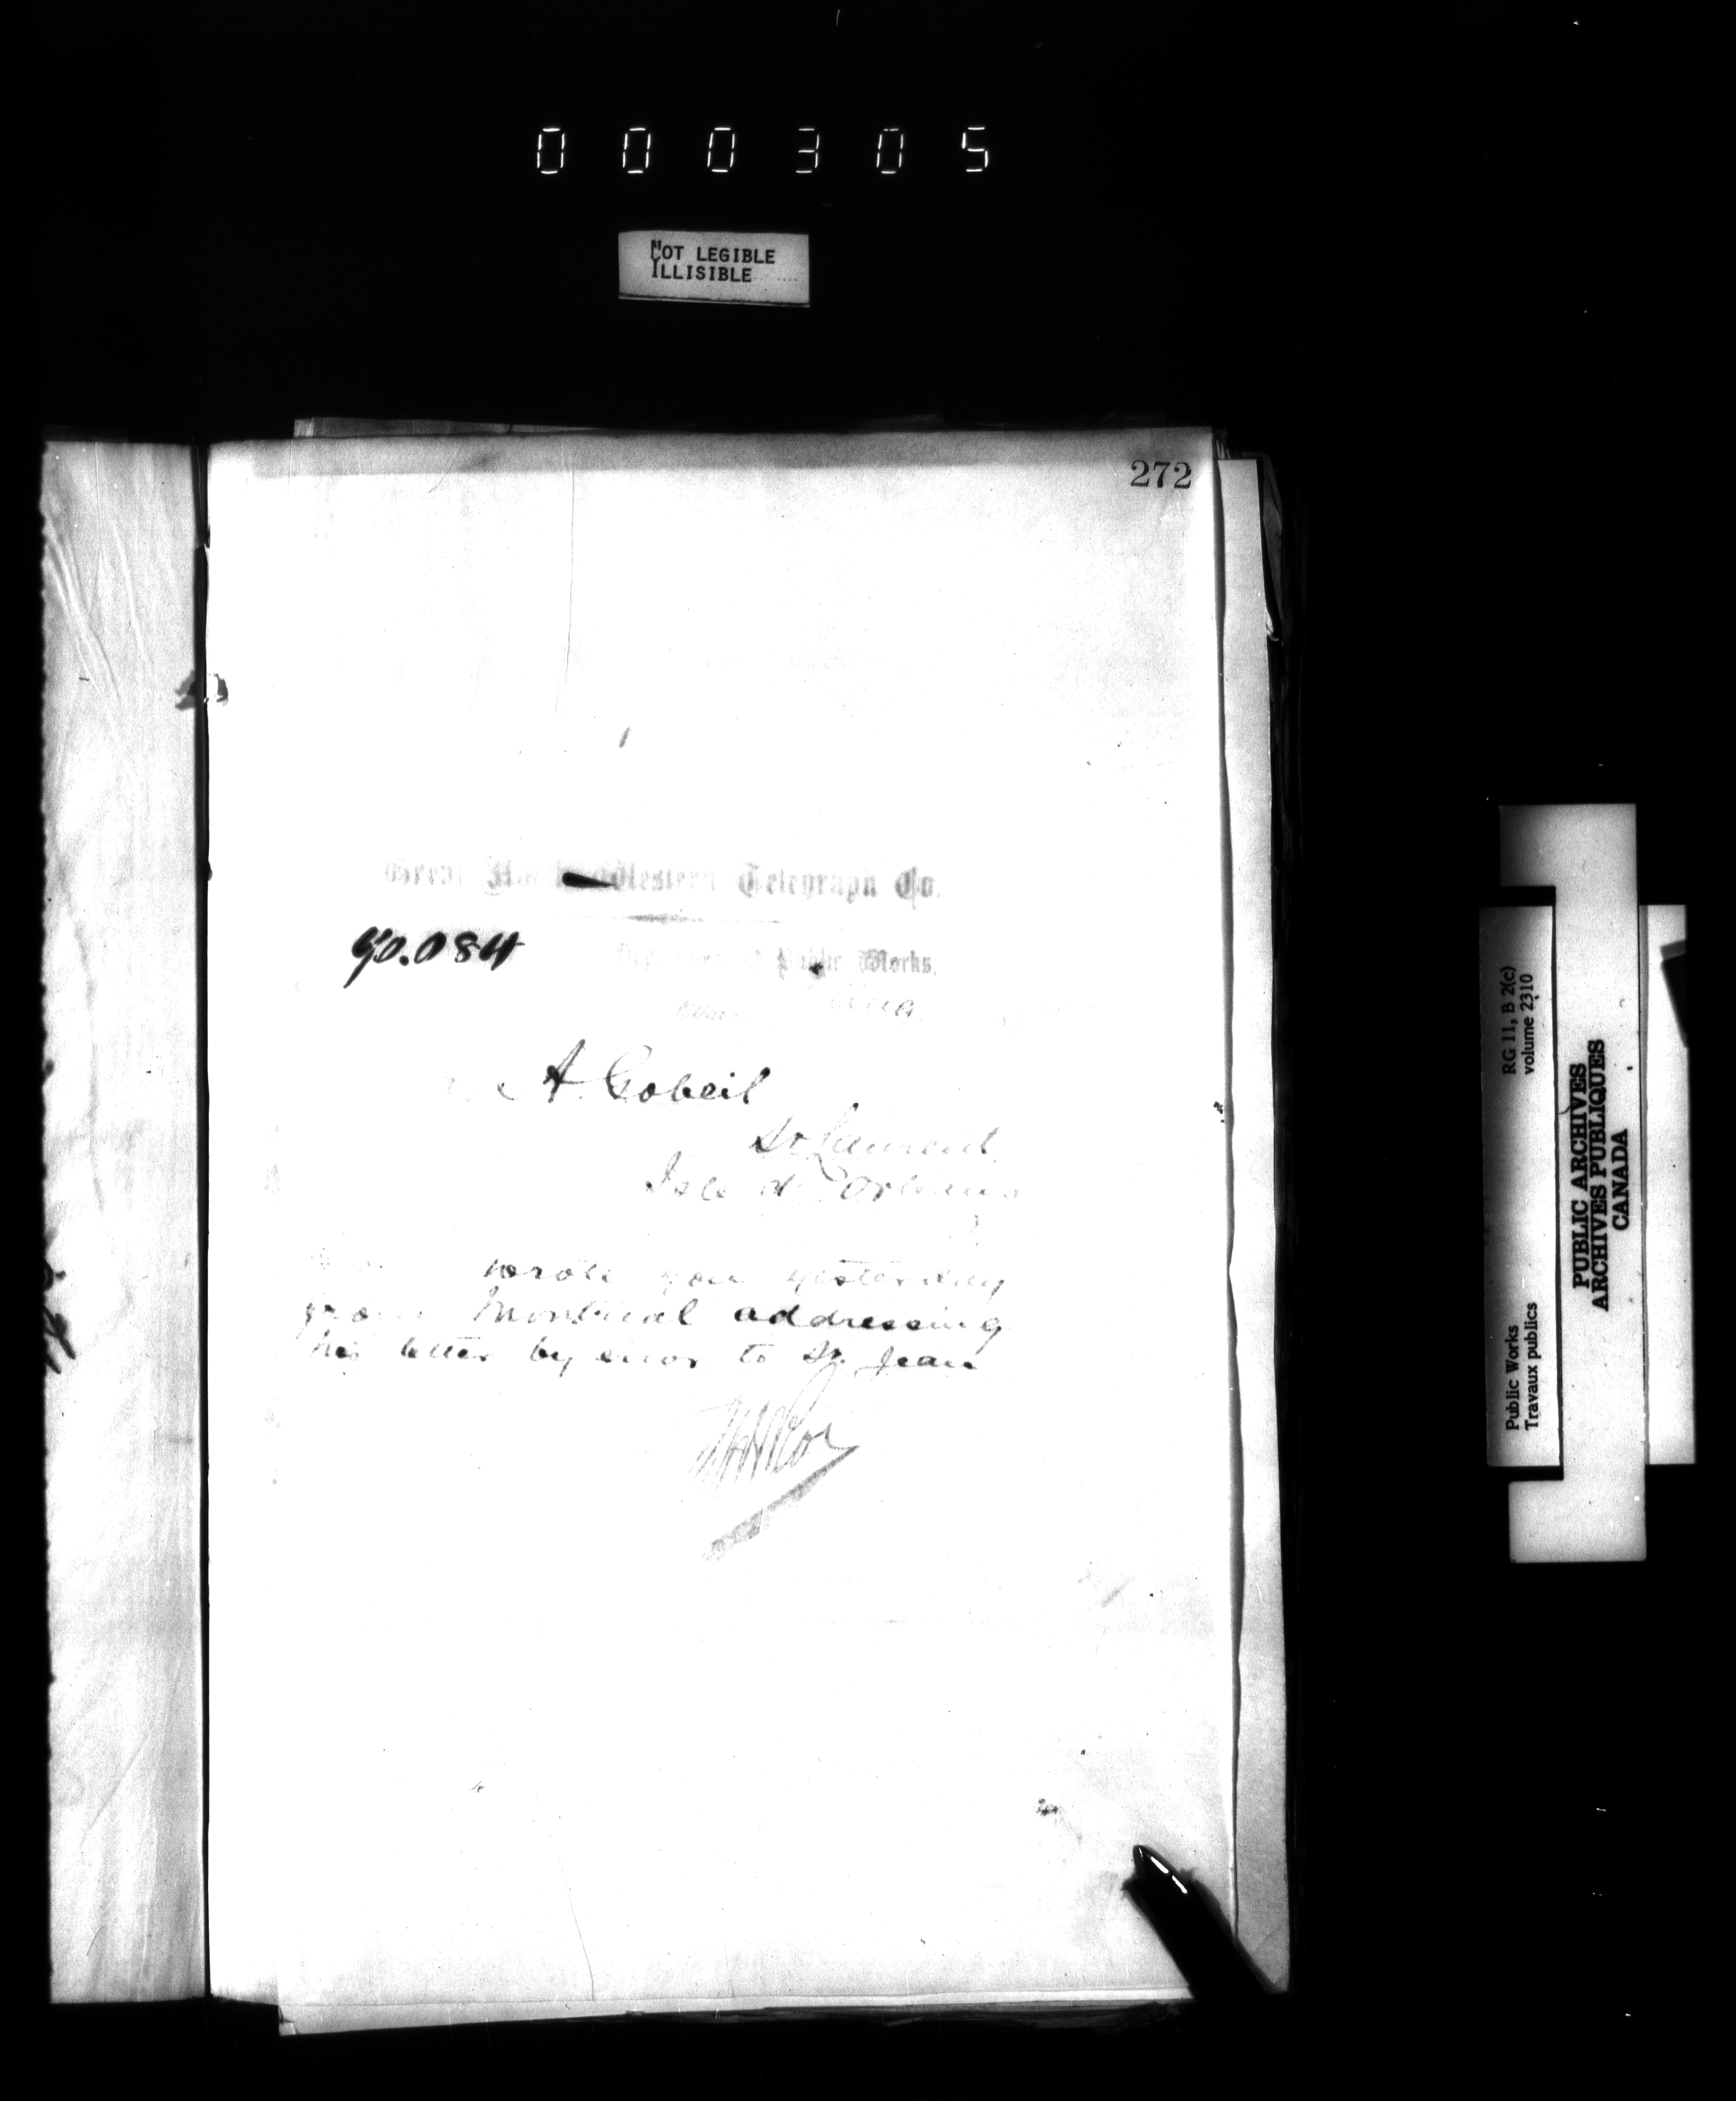 000305
NOT LEGIBLE
ILLISIBLE
272
Great Western Telegraph Co.
90.084
Public Works.
A. Gobeil
St Laurent
Isle d'Orleans
wrote you yesterday
from Montreal addressing
his letter by error to St. Jean
RG 11, B 2(c)
volume 2310
Public Works
Travaux publics
PUBLIC ARCHIVES
ARCHIVES PUBLIQUES
CANADA